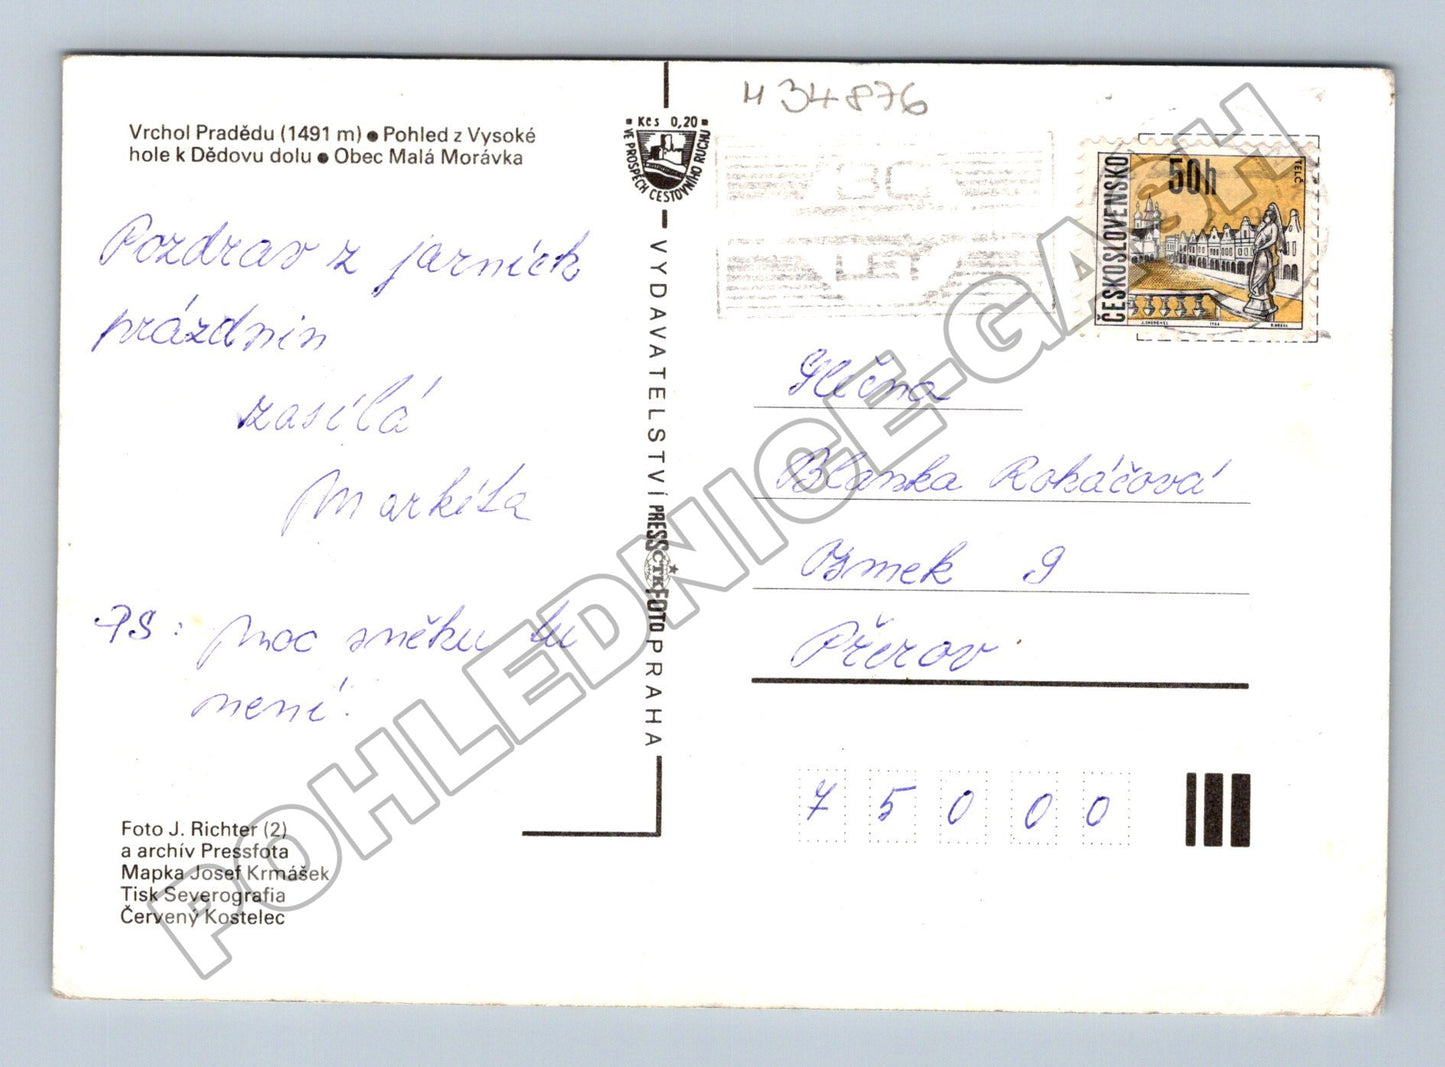 Vrchol Pradědu (1491 m) ● Pohled z Vysoké
hole k Dědovu dolu ● Obec Malá Morávka
Pozdrav z jarních
prázdnin
zasílá
Markéta
PS: Moc sněhu tu
není!
Foto J. Richter (2)
a archív Pressfota
Mapka Josef Krmášek
Tisk Severografia
Červený Kostelec
Kčs 0,20
VE PROSPĚCH CESTOVNÍHO RUCHU
VYDAVATELSTVÍ PRESSFOTO PRAHA
ČTK
M 34876
LET
ČESKOSLOVENSKO
50h
TELČ
1966
Slečna
Blanka Roháčová
Osmek 9
Přerov
7 5 0 0 0
POHLEDNICE-GASH